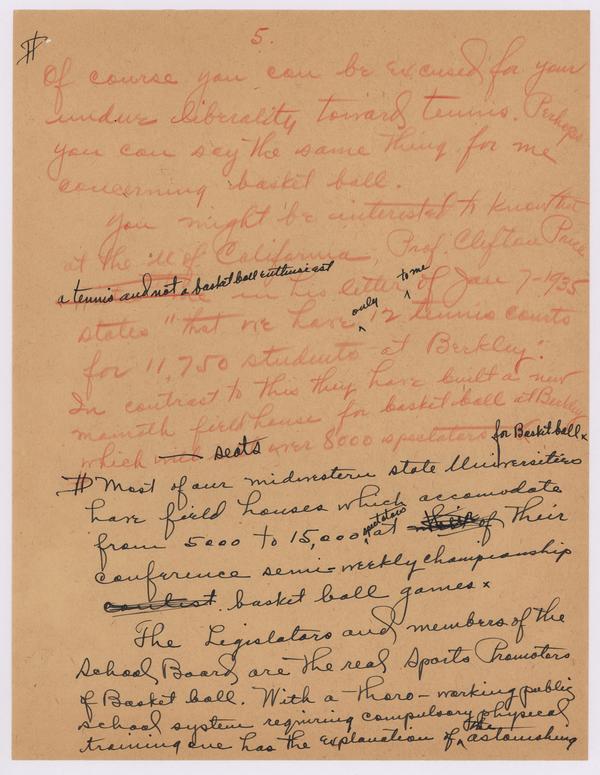 5.
Of course you can be excused for your
undue liberality toward tennis. Perhaps
you can say the same thing for me
concerning basket ball.
You might be interested to know that
at the U of California, Prof. Clifton Price
a tennis and not a basket ball enthusiast
in his letter to me of Jan 7-1935
states "that we have only 12 tennis courts
for 11,750 students at Berkley".
In contrast to this they have built a new
mamoth field house for basket ball at Berkley
which seats over 8000 spectators for Basket ball x
Most of our midwestern state Universities
have field houses which accomodate
from 5000 to 15,000 spectators at their of their
conference semi-weekly championship
contest basket ball games x
The Legislators and members of the
School Board are the real Sports Promoters
of Basket ball. With a thoro-working public
school system requiring compulsory physical
training one has the explanation of the astonishing